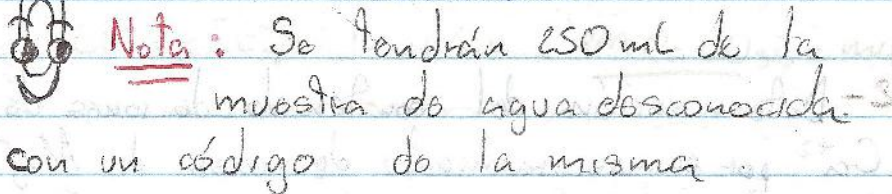 Nota: Se tendrán 250 mL de la
muestra de agua desconocida
con un código de la misma.